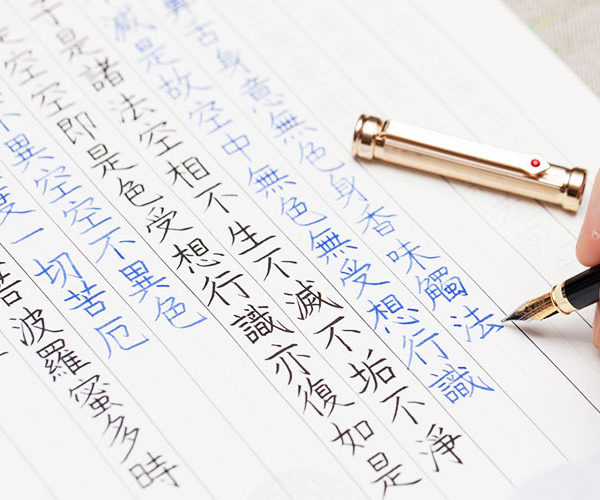 波羅蜜多時
度一切苦厄
不異空空不異色
空空即是色受想行識亦復如是
子是諸法空相不生不滅不垢不淨
減是故空中無色無受想行識
舌身意無色身香味觸法